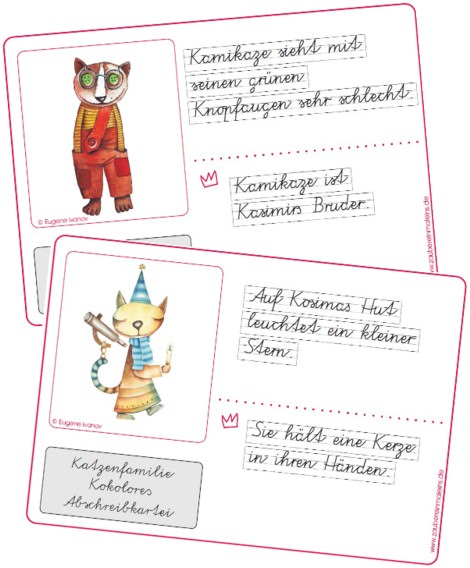 Kamikaze sieht mit
seinen grünen
Knopfaugen sehr schlecht.
Kamikaze ist
Kasimirs Bruder.
© Eugene Ivanov
www.zaubereinmaleins.de
Auf Kosimas Hut
leuchtet ein kleiner
Stern.
Sie hält eine Kerze
in ihren Händen.
© Eugene Ivanov
Katzenfamilie
Kokolores
Abschreibkartei
www.zaubereinmaleins.de